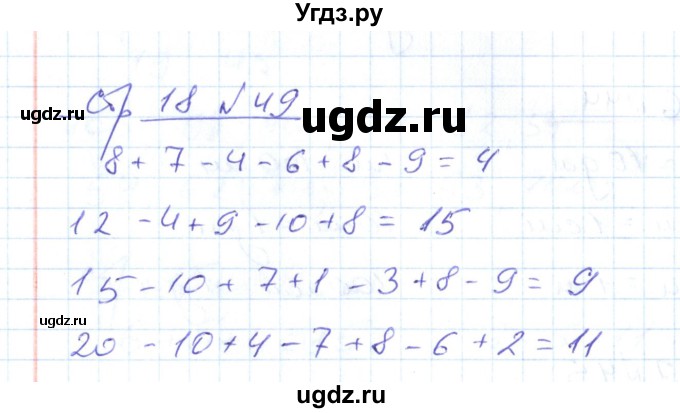 Угдз.ру
Стр 18 №49
ugdz.ru
ugdz.ru
8 + 7 - 4 - 6 + 8 - 9 = 4
12 - 4 + 9 - 10 + 8 = 15
15 - 10 + 7 + 1 - 3 + 8 - 9 = 9
ugdz.ru
20 - 10 + 4 - 7 + 8 - 6 + 2 = 11
ugdz.ru